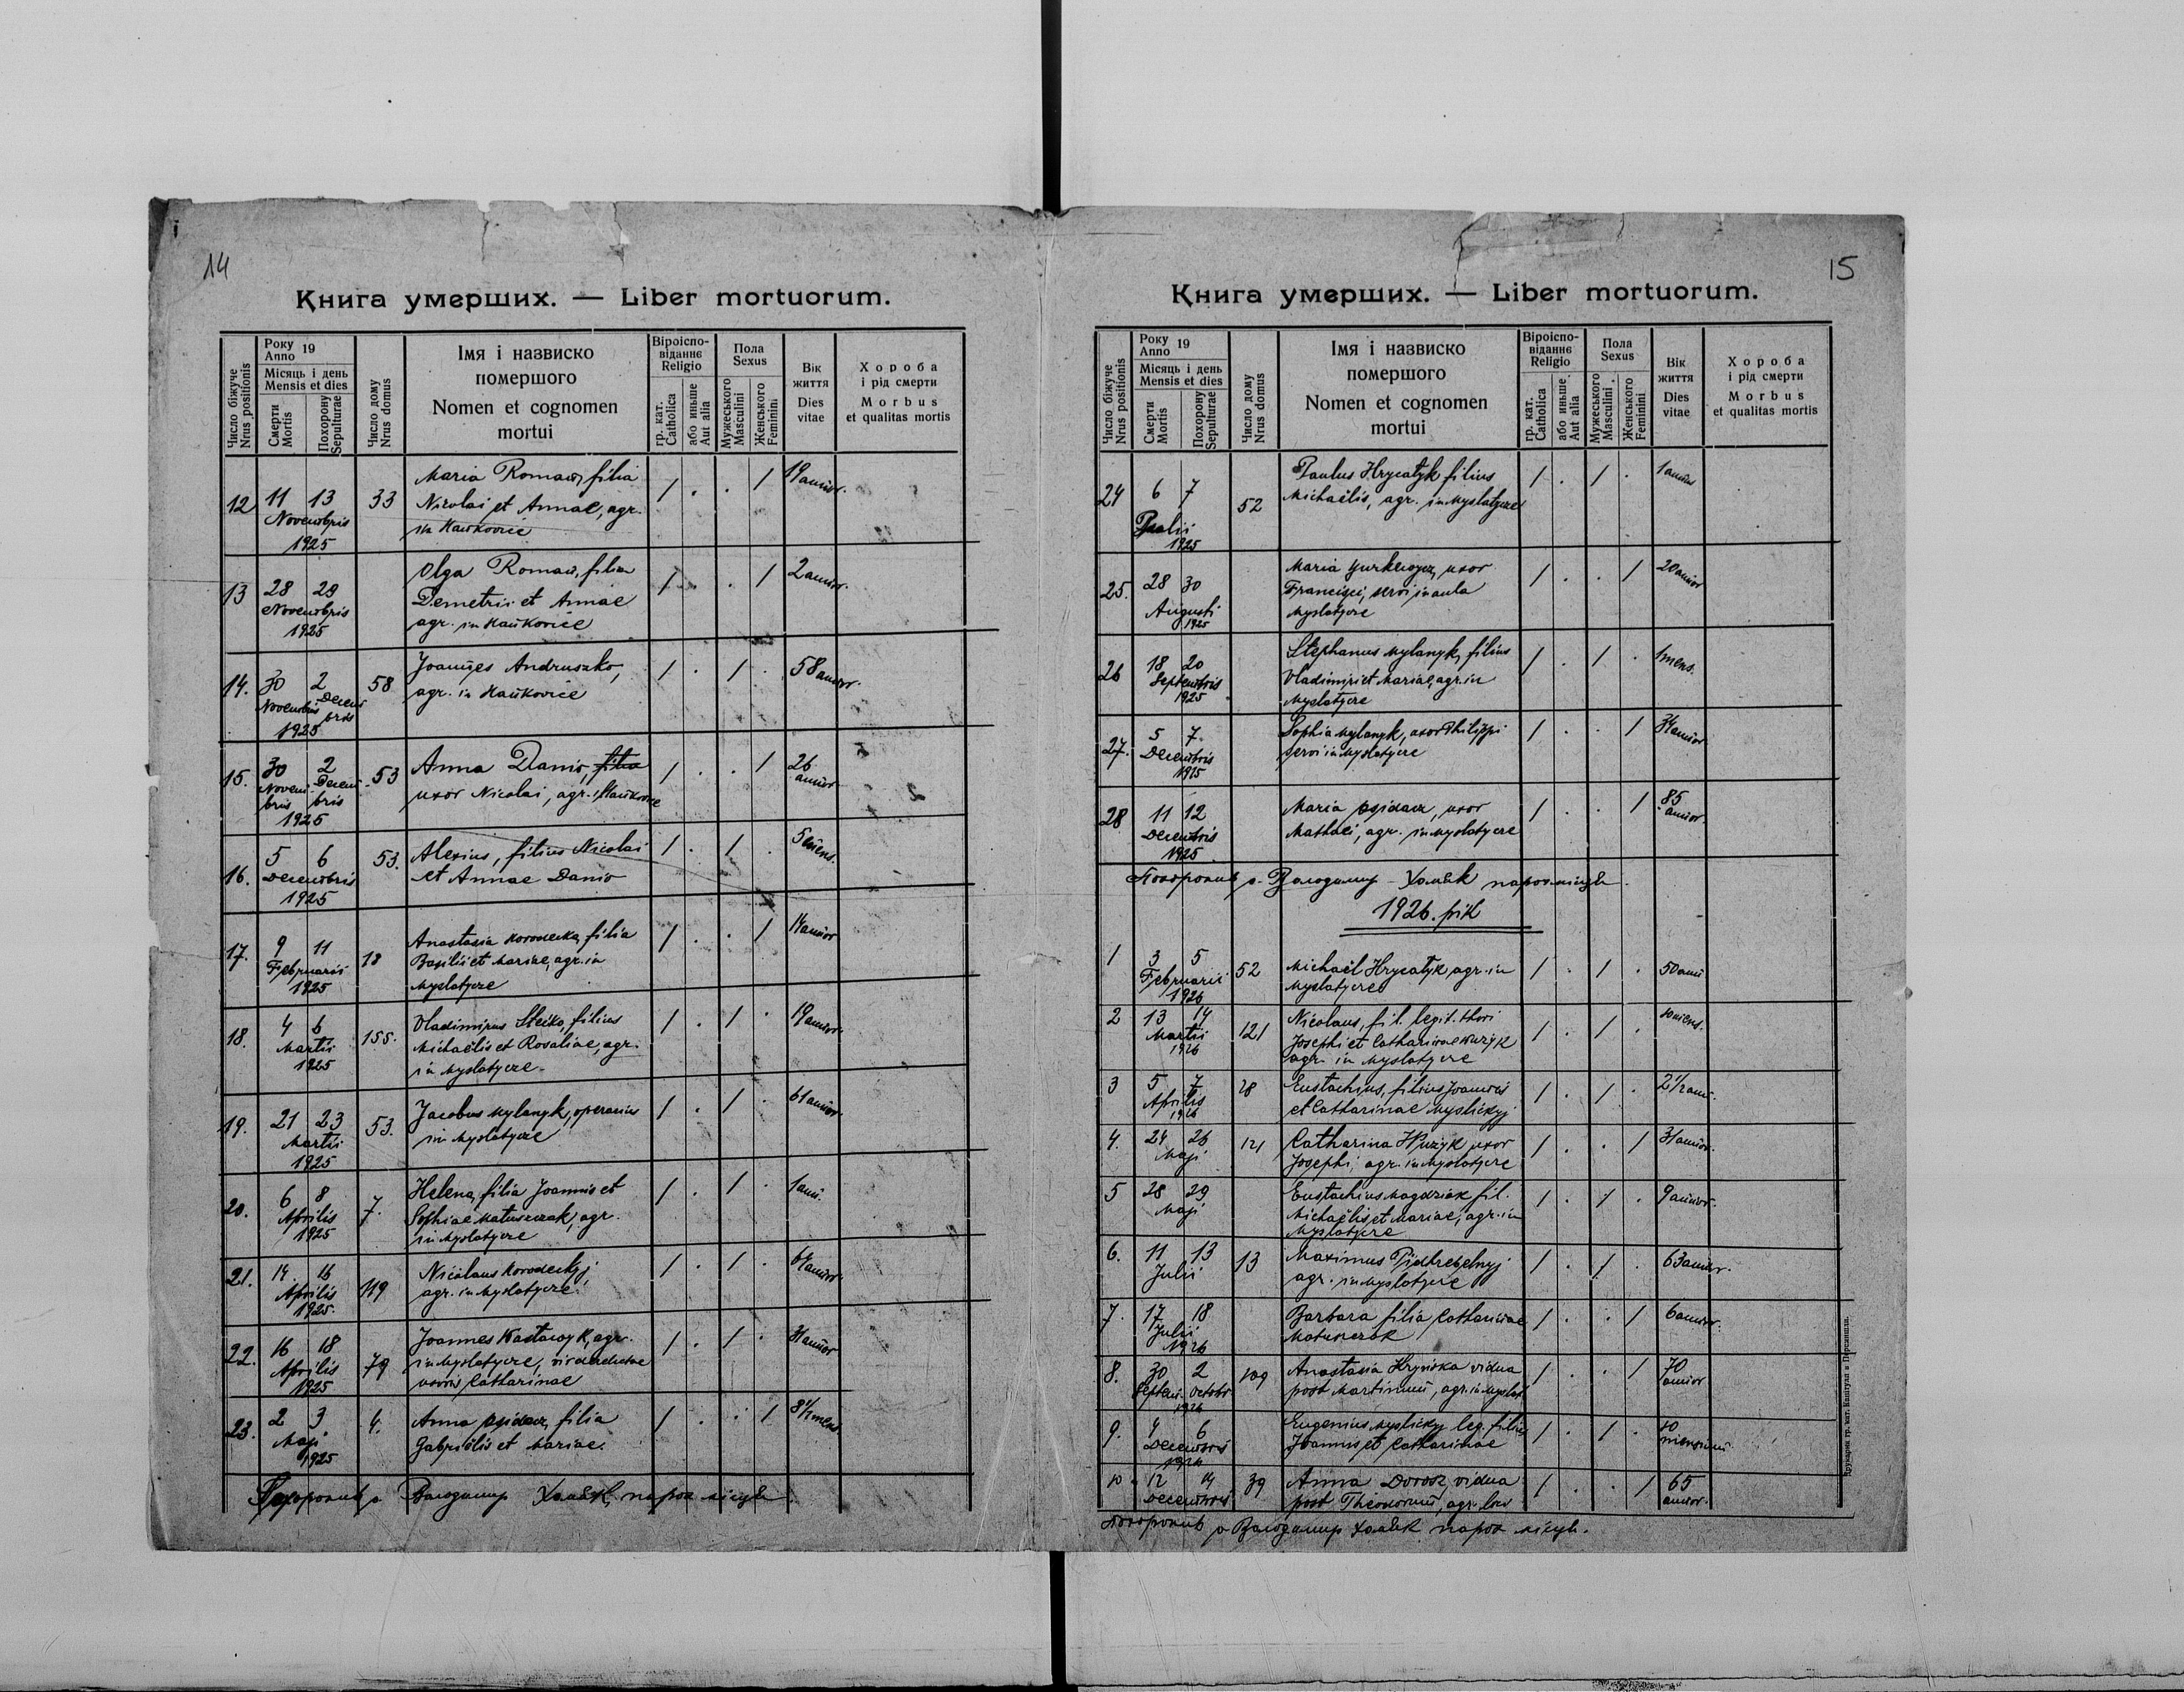 14
Книга умерших. — Liber mortuorum.
Число біжуче
Nrus positionis
Року
Anno 19
Місяць і день
Mensis et dies
Смерти
Mortis
Похорону
Sepulturae
Число дому
Nrus domus
Імя і назвиско
помершого
Nomen et cognomen
mortui
Віроіспо-
віданнє
Religio
гр. кат.
Catholica
або иньше
Aut alia
Пола
Sexus
Мужеського
Masculini
Женського
Feminini
Вік
життя
Dies
vitae
Хороба
і рід смерти
Morbus
et qualitas mortis
12 11 13 33 Maria Roman, filia / . . / 19 annor.
Novembris Nicolai et Annae, agr.
1925 in Hańkovice
13 28 29 Olga Roman, filia / . . / 2 annor.
Novembris Demetrii et Annae
1925 agr. in Hańkovice
14. 30 2 58 Joannes Andruszko, / . / . 58 annor.
Novembris Decembris agr. in Hańkovice
1925
15. 30 2 53 Anna Danio, filia / . . / 26 annor.
Novembris Decembris uxor Nicolai, agr. Hańkovice
1925
16. 5 6 53. Alexius, filius Nicolai / . / . 5 mens.
Decembris et Annae Danio
1925
17. 9 11 18 Anastasia Korodecka, filia / . . / 14 annor
Februarii Basilii et Mariae, agr. in
1925 Myslatycze
18. 4 6 155. Vladimirus Stećko, filius / . / . 19 annor.
Martii Michaëlis et Rosaliae, agr.
1925 in Myslatycze.
19. 21 23 53. Jacobus Mylanyk, operarius / . / . 61 annor.
Martii in Myslatycze
1925
20. 6 8 7. Helena, filia Joannis et / . / . 1 anni.
Aprilis Sophiae Matuszczak, agr.
1925 in Myslatycze
21. 14 16 119 Nicolaus Korodeckyj, / . / . 64 annor.
Aprilis agr. in Myslatycze.
1925.
22. 16 18 79 Joannes, agr. / . / . 31 annor
Aprilis in Myslatycze,
1925 uxoris Catharinae
23. 2 3 4. Anna, filia / . . / 8 1/2 mens.
Maji Gabriëlis et Mariae.
1925
Похоронив о. Володимир Хомяк, парох місцев.
15
Книга умерших. — Liber mortuorum.
Число біжуче
Nrus positionis
Року
Anno 19
Місяць і день
Mensis et dies
Смерти
Mortis
Похорону
Sepulturae
Число дому
Nrus domus
Імя і назвиско
помершого
Nomen et cognomen
mortui
Віроіспо-
віданнє
Religio
гр. кат.
Catholica
або иньше
Aut alia
Пола
Sexus
Мужеського
Masculini
Женського
Feminini
Вік
життя
Dies
vitae
Хороба
і рід смерти
Morbus
et qualitas mortis
24 6 7 52 Paulus Hrycatyk filius / . / . 1 annus
Julii Michaëlis, agr. in Myslatycze
1925
25. 28 30 Maria, uxor / . . / 20 annor
Augusti Francisci, servi in aula
1925 Myslatycze
26 18 20 Stephanus Mylanyk, filius / . / . 1 mens.
Septembris Vladimiri et Mariae, agr. in
1925 Myslatycze
27. 5 7. Sophia Mylanyk, uxor Philippi / . . / 34 annor.
Decembris servi in Myslatycze
1925
28 11 12 Maria, uxor / . . / 85 annor.
Decembris Mathaei, agr. in Myslatycze
1925
Похоронив о. Володимир Хомяк парох місцев.
1926. рік
1 3 5 52 Michaël Hrycatyk agr. in / . / . 50 anni
Februarii Myslatycze
1926
2 13 14 121 Nicolaus, fil. legit. thori / . / . 10 mens.
Martii Josephi et Catharinae Huzyk
1926 agr. in Myslatycze
3 5 7 28 Eustachius, filius Joannis / . / . 2 1/2 ann.
Aprilis et Catharinae Myslickyj
1926
4. 24 26 121 Catharina Huzyk uxor / . . / 31 annor.
Maji Josephi, agr. in Myslatycze
5 28 29 Eustachius Magdziak fil. / . / . 9 annor.
Maji Michaëlis et Mariae, agr. in
Myslatycze
6. 11 13 13 Maximus Pidhrebelnyj / . / . 63 annor.
Julii agr. in Myslatycze
7. 17 18 Barbara filia Catharinae / . . / 6 annor.
Julii Matuszczak
1926
8. 30 2 109 Anastasia Hryńska vidua / . . / 70 annor
Septem. Octobr. post Martinum, agr. in Myslat.
1926
9. 4 6 Eugenius Myslickyj leg. filius / . / . 10 mensium
Decembris Joannis et Catharinae
1926
10 12 14 39 Anna Dorosz, vidua / . . / 65 annor.
Decembris post Theodorum, agr. loci
Похоронив о. Володимир Хомяк парох місцев.